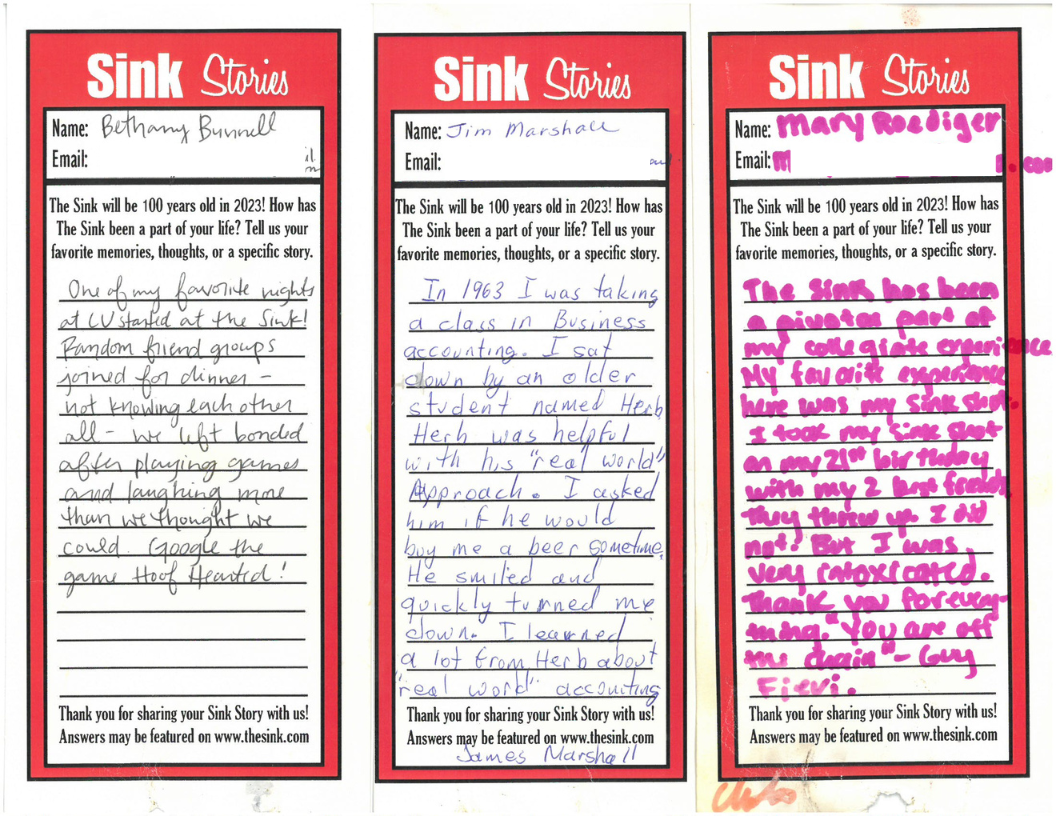 Sink Stories
Name: Bethany Bunnell
Email:
The Sink will be 100 years old in 2023! How has
The Sink been a part of your life? Tell us your
favorite memories, thoughts, or a specific story.
One of my favorite nights
at CU started at the Sink!
Random friend groups
joined for dinner –
not knowing each other
all – we left bonded
after playing games
and laughing more
than we thought we
could. Google the
game Hoof Hearted!
Thank you for sharing your Sink Story with us!
Answers may be featured on www.thesink.com
Sink Stories
Name: Jim Marshall
Email:
The Sink will be 100 years old in 2023! How has
The Sink been a part of your life? Tell us your
favorite memories, thoughts, or a specific story.
In 1963 I was taking
a class in Business
accounting. I sat
down by an older
student named Herb
Herb was helpful
with his "real world"
Approach. I asked
him if he would
buy me a beer sometime.
He smiled and
quickly turned me
down. I learned
a lot from Herb about
"real world" accounting
Thank you for sharing your Sink Story with us!
Answers may be featured on www.thesink.com
James Marshall
Sink Stories
Name: Mary Roediger
Email: M
The Sink will be 100 years old in 2023! How has
The Sink been a part of your life? Tell us your
favorite memories, thoughts, or a specific story.
The Sink has been
a pivotal part of
my collegiate experience
My favorite experience
here was my Sink shot.
I took my Sink shot
on my 21st birthday
with my 2 best friends
they threw up I did
not. But I was
very intoxicated.
Thank you for every-
thing. "You are off
the chain" – Guy
Fievi.
Thank you for sharing your Sink Story with us!
Answers may be featured on www.thesink.com